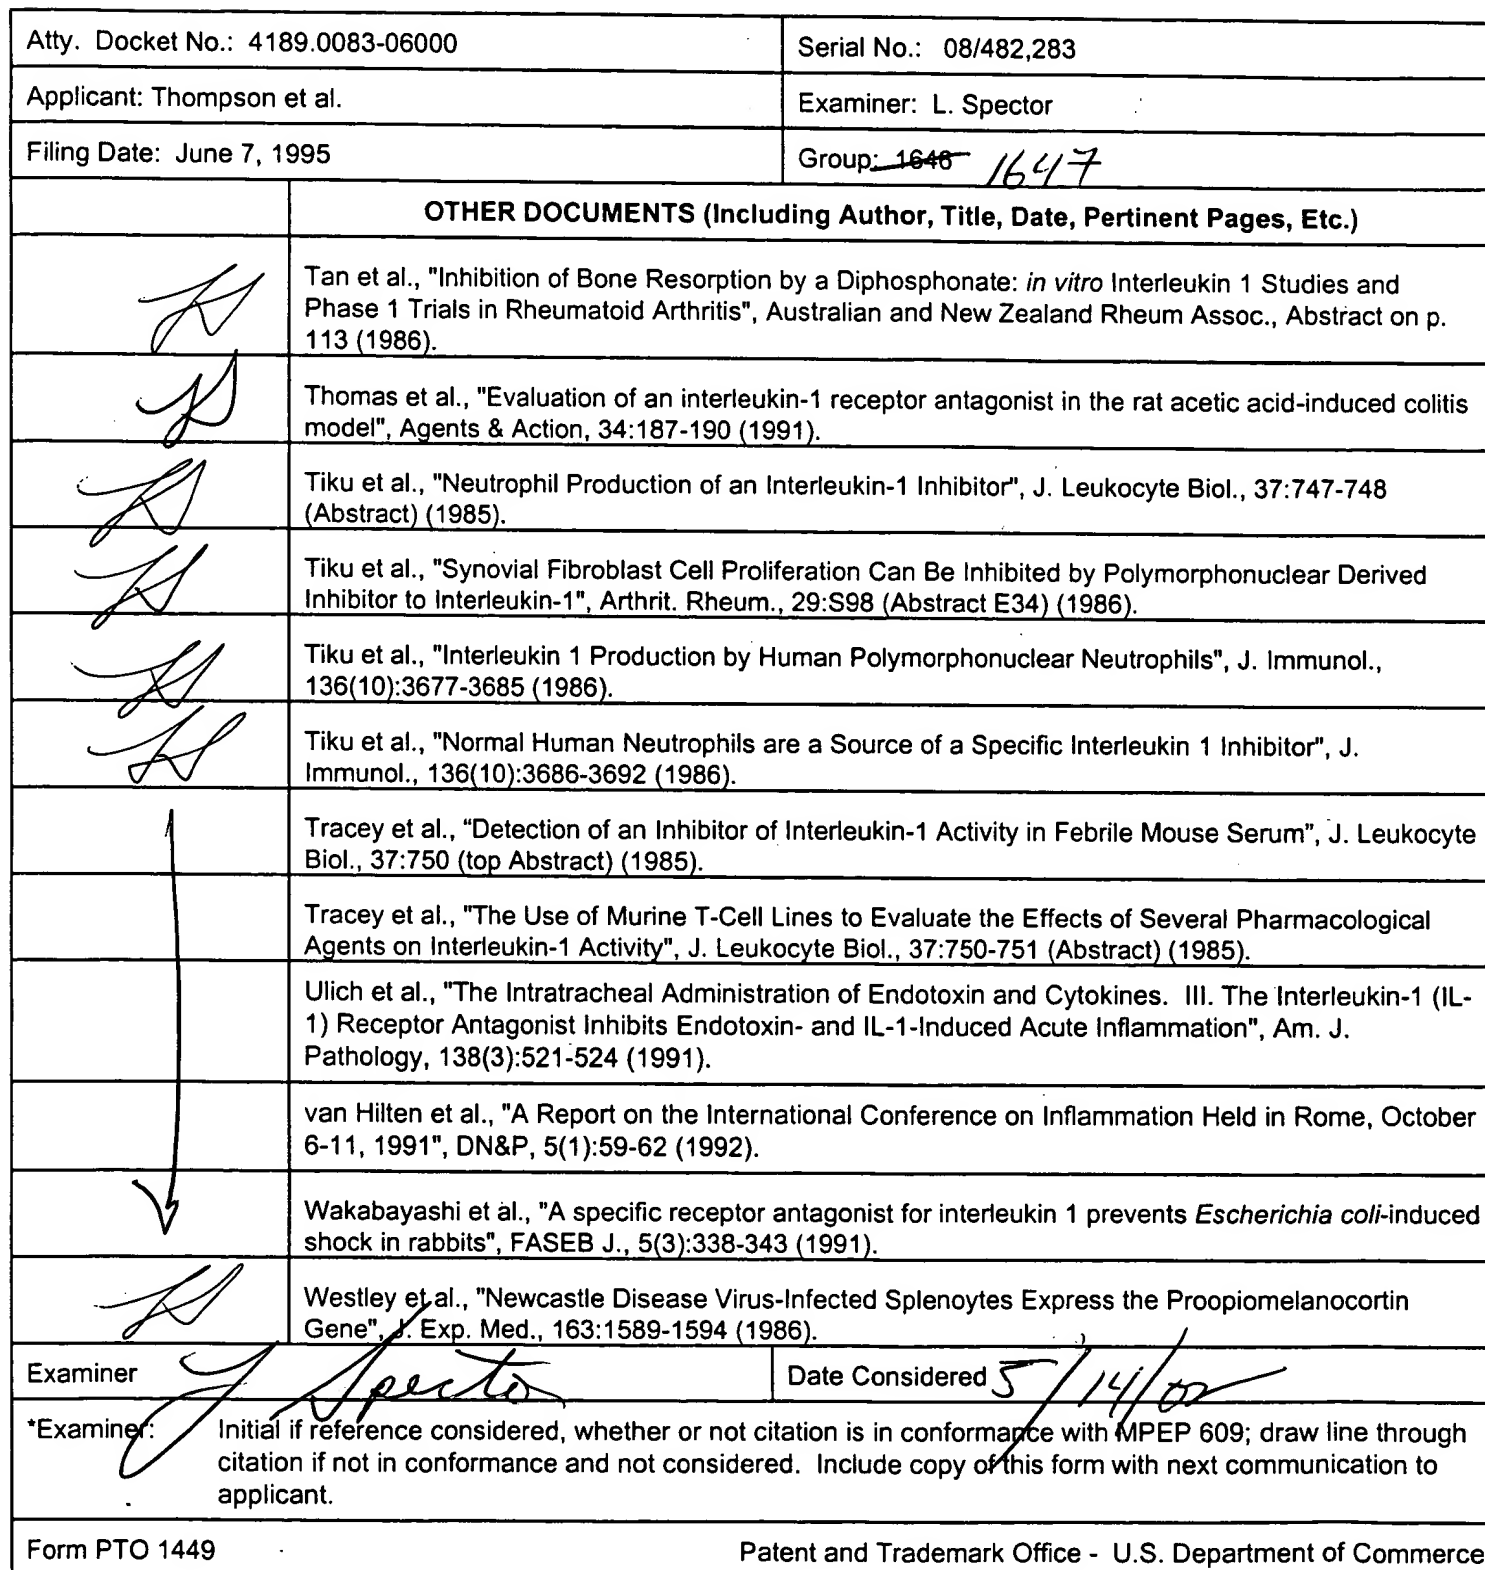 Atty. Docket No.: 4189.0083-06000
Serial No.: 08/482,283
Applicant: Thompson et al.
Examiner: L. Spector
Filing Date: June 7, 1995
Group: 1646 1647
OTHER DOCUMENTS (Including Author, Title, Date, Pertinent Pages, Etc.)
Tan et al., "Inhibition of Bone Resorption by a Diphosphonate: in vitro Interleukin 1 Studies and
Phase 1 Trials in Rheumatoid Arthritis", Australian and New Zealand Rheum Assoc., Abstract on p.
113 (1986).
Thomas et al., "Evaluation of an interleukin-1 receptor antagonist in the rat acetic acid-induced colitis
model", Agents & Action, 34:187-190 (1991).
Tiku et al., "Neutrophil Production of an Interleukin-1 Inhibitor", J. Leukocyte Biol., 37:747-748
(Abstract) (1985).
Tiku et al., "Synovial Fibroblast Cell Proliferation Can Be Inhibited by Polymorphonuclear Derived
Inhibitor to Interleukin-1", Arthrit. Rheum., 29:S98 (Abstract E34) (1986).
Tiku et al., "Interleukin 1 Production by Human Polymorphonuclear Neutrophils", J. Immunol.,
136(10):3677-3685 (1986).
Tiku et al., "Normal Human Neutrophils are a Source of a Specific Interleukin 1 Inhibitor", J.
Immunol., 136(10):3686-3692 (1986).
Tracey et al., "Detection of an Inhibitor of Interleukin-1 Activity in Febrile Mouse Serum", J. Leukocyte
Biol., 37:750 (top Abstract) (1985).
Tracey et al., "The Use of Murine T-Cell Lines to Evaluate the Effects of Several Pharmacological
Agents on Interleukin-1 Activity", J. Leukocyte Biol., 37:750-751 (Abstract) (1985).
Ulich et al., "The Intratracheal Administration of Endotoxin and Cytokines. III. The Interleukin-1 (IL-
1) Receptor Antagonist Inhibits Endotoxin- and IL-1-Induced Acute Inflammation", Am. J.
Pathology, 138(3):521-524 (1991).
van Hilten et al., "A Report on the International Conference on Inflammation Held in Rome, October
6-11, 1991", DN&P, 5(1):59-62 (1992).
Wakabayashi et al., "A specific receptor antagonist for interleukin 1 prevents Escherichia coli-induced
shock in rabbits", FASEB J., 5(3):338-343 (1991).
Westley et al., "Newcastle Disease Virus-Infected Splenoytes Express the Proopiomelanocortin
Gene", J. Exp. Med., 163:1589-1594 (1986).
Examiner L Spector
Date Considered 5/14/02
*Examiner: Initial if reference considered, whether or not citation is in conformance with MPEP 609; draw line through
citation if not in conformance and not considered. Include copy of this form with next communication to
applicant.
Form PTO 1449
Patent and Trademark Office - U.S. Department of Commerce